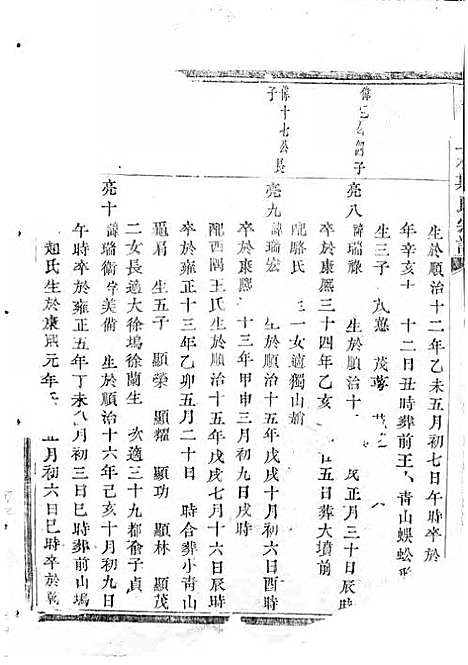 生於順治十二年乙未五月初七日午時卒於
年辛亥十 十二日丑時葬前王 青山蜈蚣形
生三子 茂
偉 公 子
亮八 諱瑞祿 生於順治十 正月三十日辰時
卒於康熙三十四年乙亥 五日葬大墳前
配駱氏 一女適獨山
偉十七公長子
亮九 諱瑞宏 生於順治十五年戊戌十月初六日酉時
卒於康熙 十三年甲申三月初九日戌時
配西隅王氏生於順治十五年戊戌七月十六日辰時
卒於雍正十三年乙卯五月二十日 時合葬小青山
肩 生五子 顯榮 顯耀 顯功 顯林 顯茂
二女長適大徐塢徐蘭生 次適三十九都俞子貞
亮十 諱瑞衡 美 生於順治十六年己亥十月初九日
午時卒於雍正五年丁未八月初三日巳時葬前山塢
趙氏生於康熙元年 月初六日巳時卒於乾